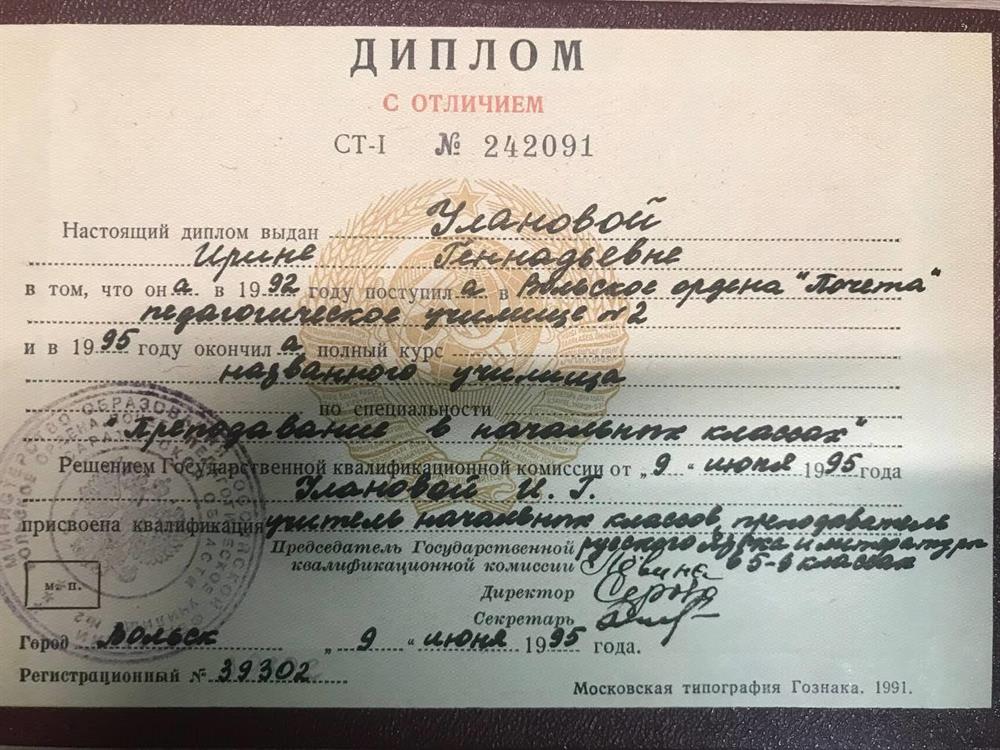 ДИПЛОМ
С ОТЛИЧИЕМ
СТ-I № 242091
Настоящий диплом выдан Улановой
Ирине Геннадьевне
в том, что он а в 1992 году поступил а в Вольское ордена "Почета"
педагогическое училище №2
и в 1995 году окончил а полный курс
названного училища
по специальности
"Преподавание в начальных классах"
Решением Государственной квалификационной комиссии от „9“ июня 1995 года
Улановой И. Г.
присвоена квалификация учитель начальных классов, преподаватель
русского языка и литературы
в 5-9 классах
Председатель Государственной
квалификационной комиссии
Директор
Секретарь
м. п.
Город Вольск „9“ июня 1995 года.
Регистрационный № 39302
Московская типография Гознака. 1991.